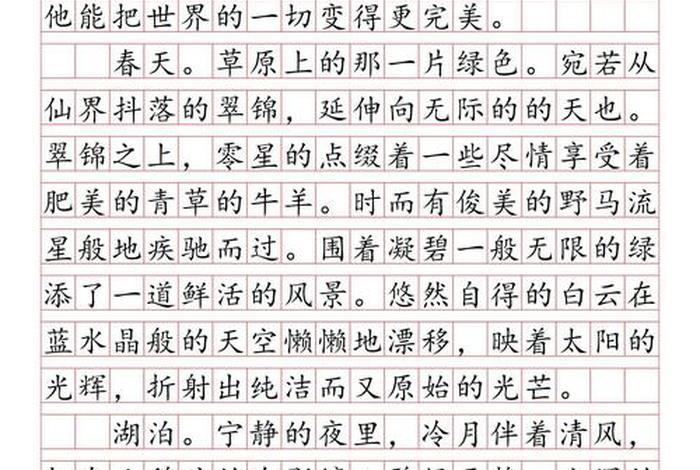 他能把世界的一切变得更完美。
春天。草原上的那一片绿色。宛若从
仙界抖落的翠锦，延伸向无际的的天也。
翠锦之上，零星的点缀着一些尽情享受着
肥美的青草的牛羊。时而有俊美的野马流
星般地疾驰而过。围着凝碧一般无限的绿
添了一道鲜活的风景。悠然自得的白云在
蓝水晶般的天空懒懒地漂移，映着太阳的
光辉，折射出纯洁而又原始的光芒。
湖泊。宁静的夜里，冷月伴着清风，